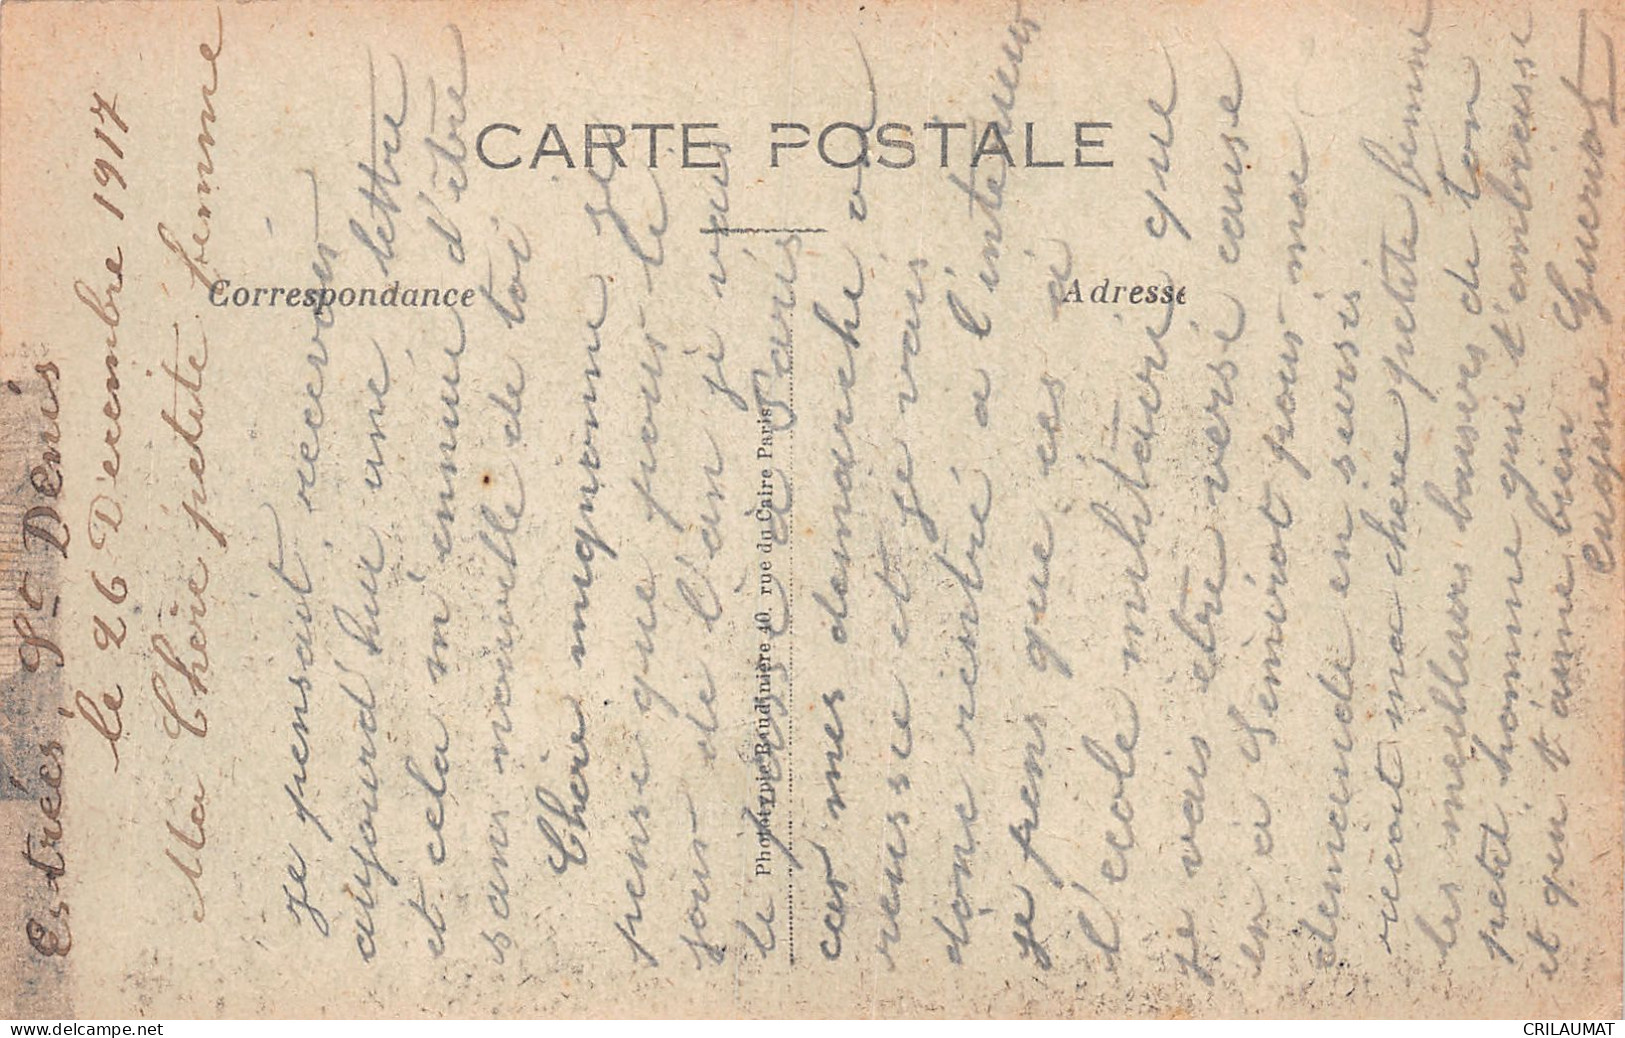 CARTE POSTALE
Correspondance
Adresse
Phototypie Baudinière 40, rue du Caire Paris
Estrées St Denis
le 26 Décembre 1917
Ma Chère petite femme
Je pensait recevoir
aujourd'hui une lettre
et cela m'ennui d'être
sans nouvelle de toi
Chère mignonne Je
pense que pour le
jour de l'an je vais
le passé à Paris
car mes demarche a
reussie et je vais
donc rentré a l'interieur
je pens que ces à
l'école militaire que
je vais etre versé cause
en à pour ma
demande en sursis
recoit ma chere petite femme
les meilleurs baisers de ton
petit homme qui t'embrasse
et qui t'aime bien
Eugène
CRILAUMAT